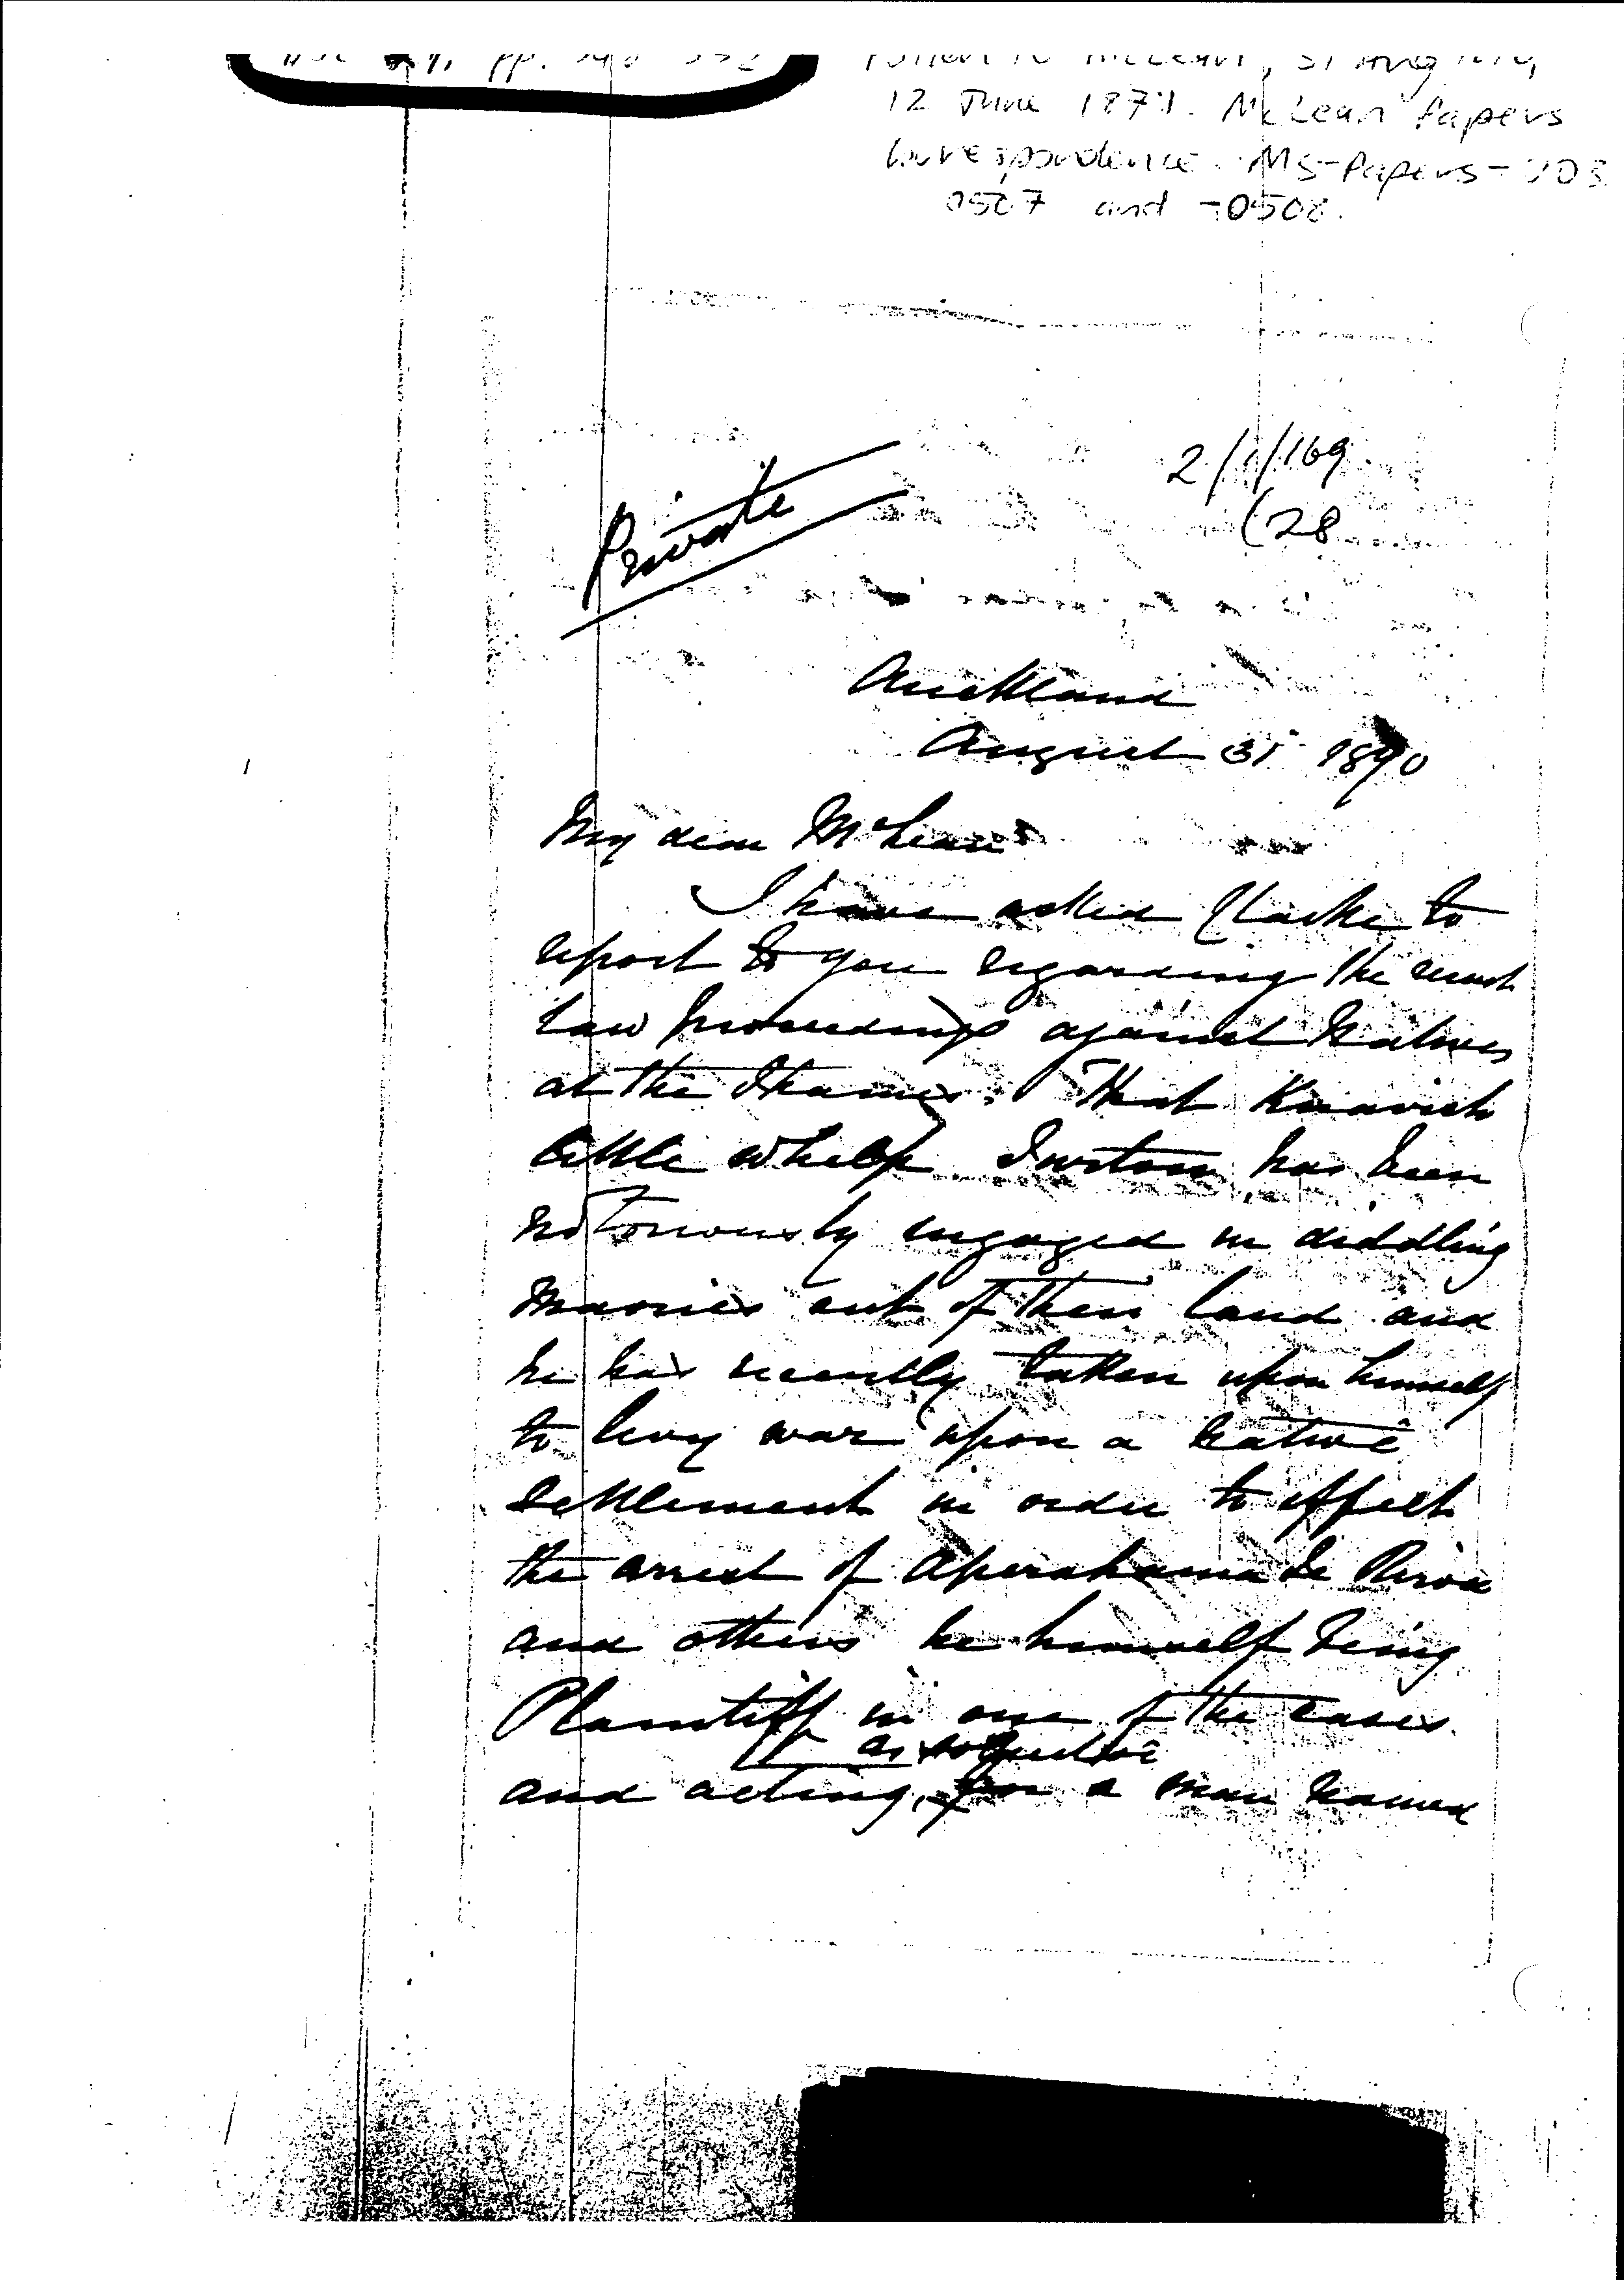 pp.
McLean, 31 Aug
12 June 1871. McLean Papers
Correspondence. MS-Papers-003
0507 and -0508.
2/1/169
(28
Private
Auckland
August 31 1870
My dear McLean
I have asked Clarke to
report to you regarding the recent
law proceedings against Natives
at the Thames. That Knavish
little whelp has been
notoriously engaged in diddling
Maories out of their land and
he has recently taken upon himself
to levy war upon a native
settlement in order to effect
the arrest of Aperahama Te Reiroa
and others he himself being
Plaintiff in one of the cases
and acting, for a man named